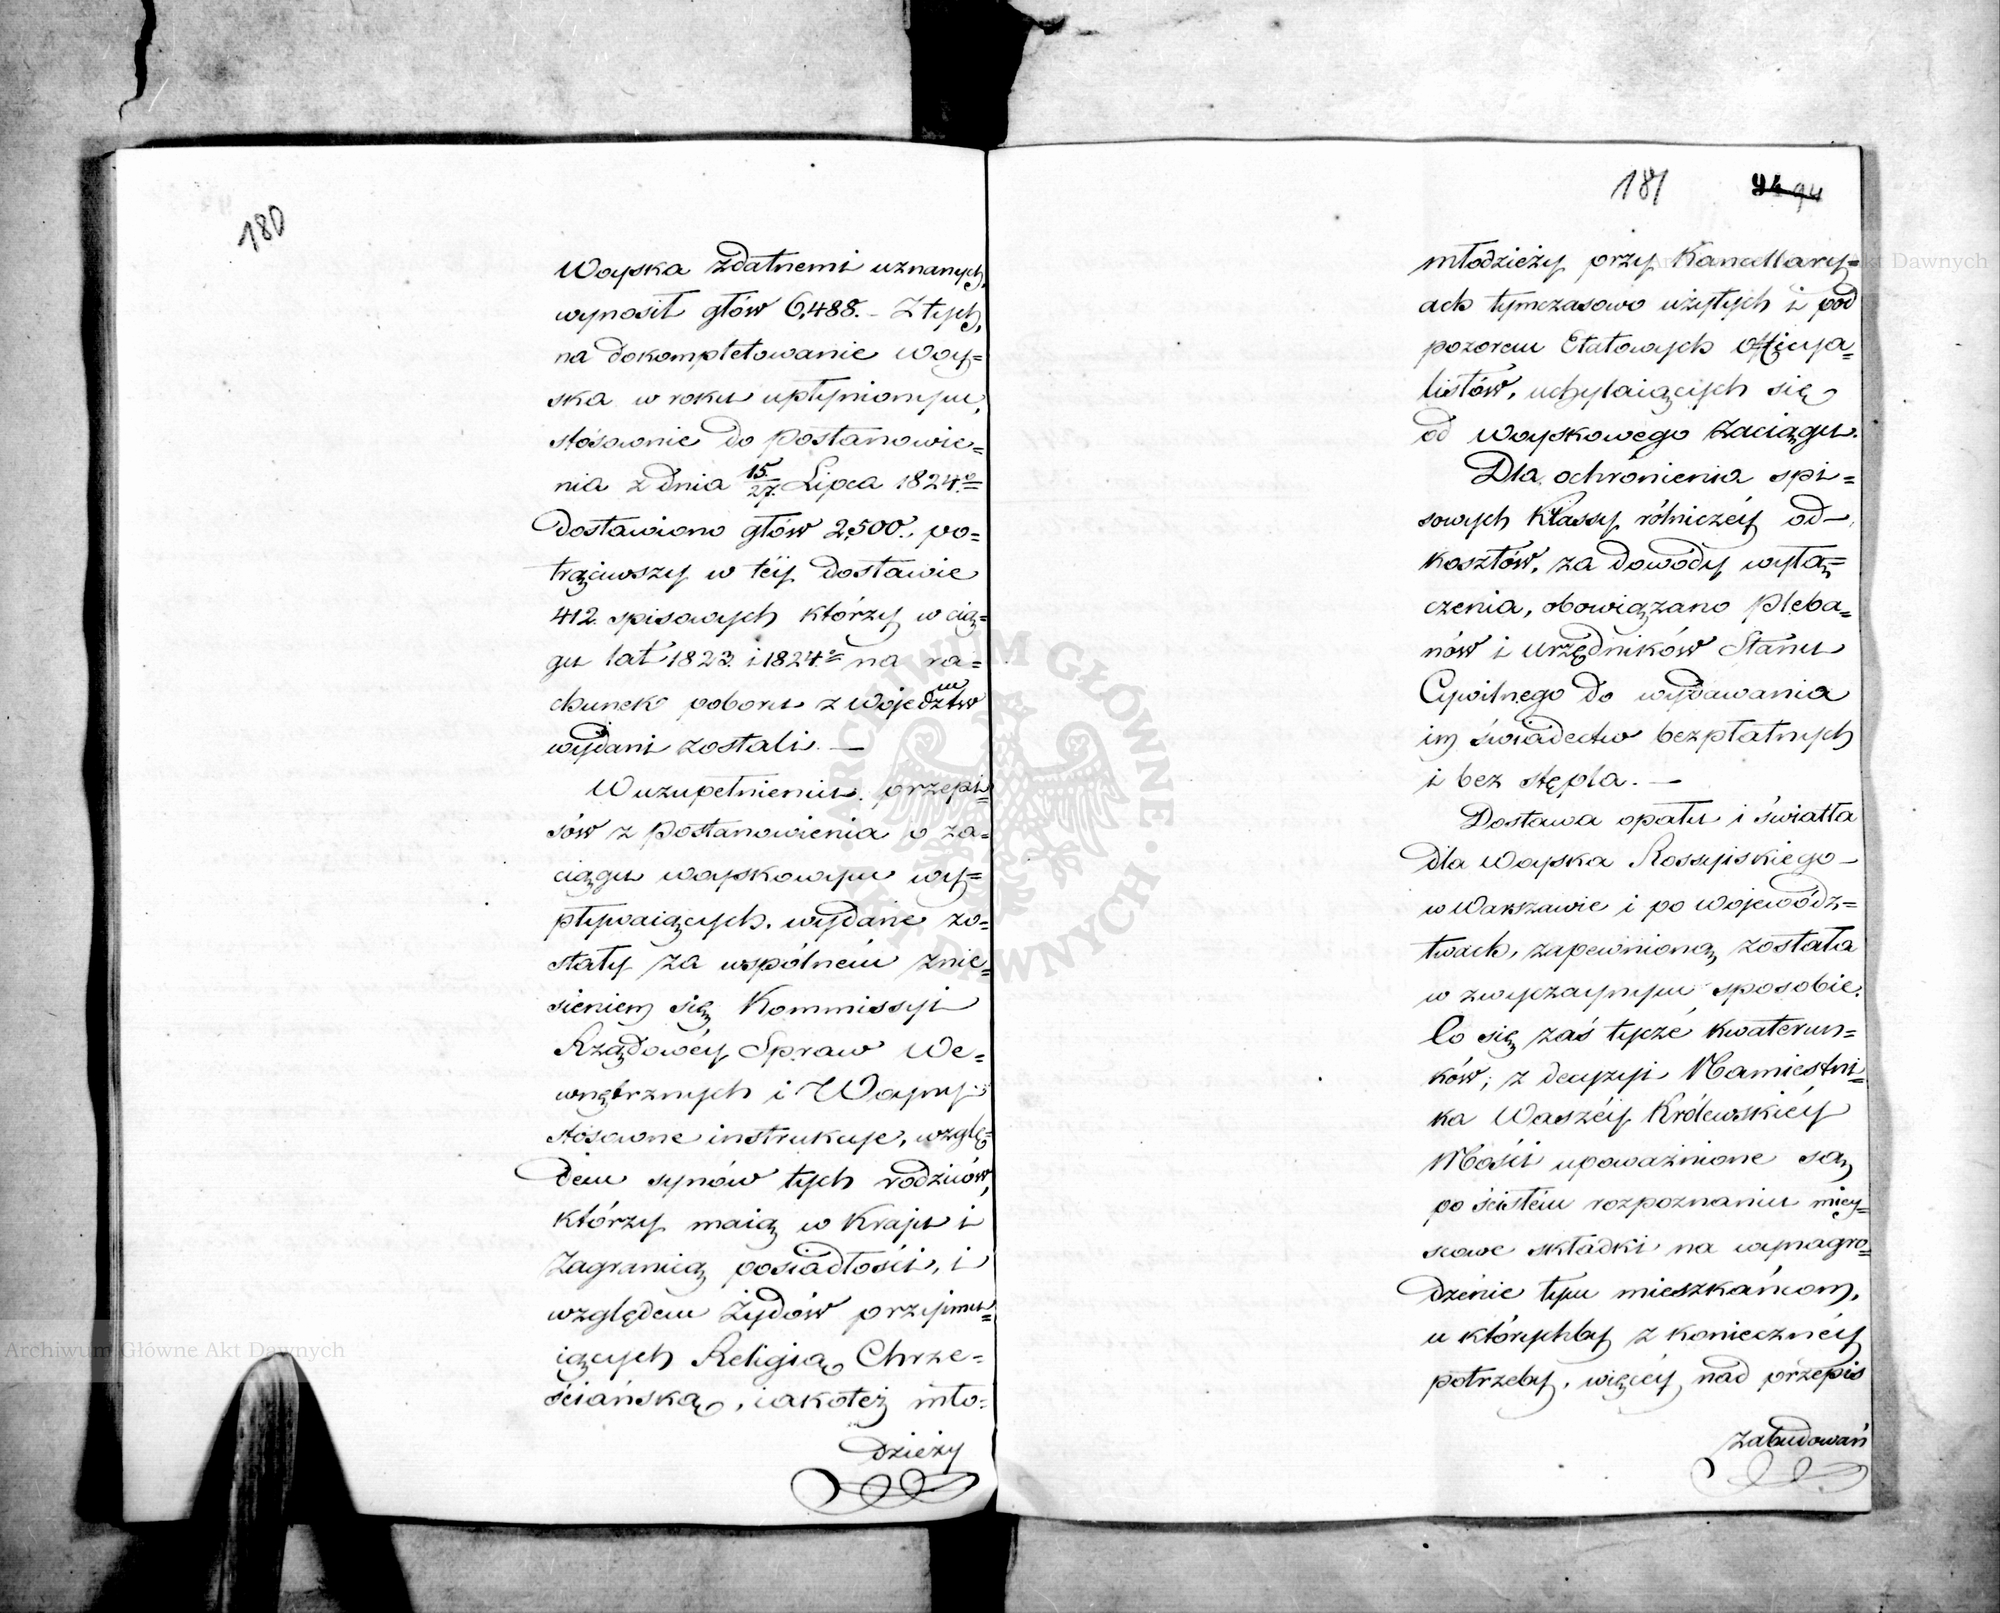 180
Woyska zdatnemi uznanych,
wynosił głów 6,488. – Z tych,
na dokompletowanie Woy=
ska w roku upłynionym,
stósownie do Postanowie=
nia z dnia 15/27. Lipca 1824.º
dostawiono głów 2,500., po=
trąciwszy w téy dostawie
412 spisowych którzy w cią=
gu lat 1823. i 1824.º na ra=
chunek poboru z Wojewdztw
wydani zostali. —
W uzupełnieniu przepi=
sów z Postanowienia o za=
ciągu woyskowym wy=
pływaiących, wydane zo=
stały za wspólném znie=
sieniem się Kommissyi
Rządowéy Spraw We=
wnętrznych i Woyny
stósowne instrukcye, wzglę=
dem synów tych rodziców,
którzy maią w Kraju i
Zagranicą posiadłości, i
względem Żydów przyjmu=
iących Religią Chrze=
ściańską, iakoteż mło=
dzieży
181 94 94
młodzieży przy Kancellary=
ach tymczasowo użytych i pod
pozorem Etatowych Officya=
listów, uchylaiących się
od Woyskowego Zaciągu.
Dla ochronienia spi=
sowych Klassy rólniczéy od
kosztów, za dowody wyłą=
czenia, obowiązano Pleba=
nów i Urzędników Stanu
Cywilnego do wydawania
im świadectw bezpłatnych
i bez stępla. —
Dostawa opału i światła
dla Woyska Rossyiskiego
w Warszawie i po Wojewódz=
twach, zapewnioną została
w zwyczaynym sposobie.
Co się zaś tycze kwaterun=
ków; z decyzyi Namiestni=
ka Waszéy Królewskiéy
Mości upoważnione są
po ścisłém rozpoznaniu miey=
scowe składki na wynagro=
dzenie tym mieszkańcom,
u którychby z koniecznéy
potrzeby, więcéy nad przepis
zabudowań
Archiwum Główne Akt Dawnych
ARCHIWUM GŁÓWNE AKT DAWNYCH
Archiwum Główne Akt Dawnych